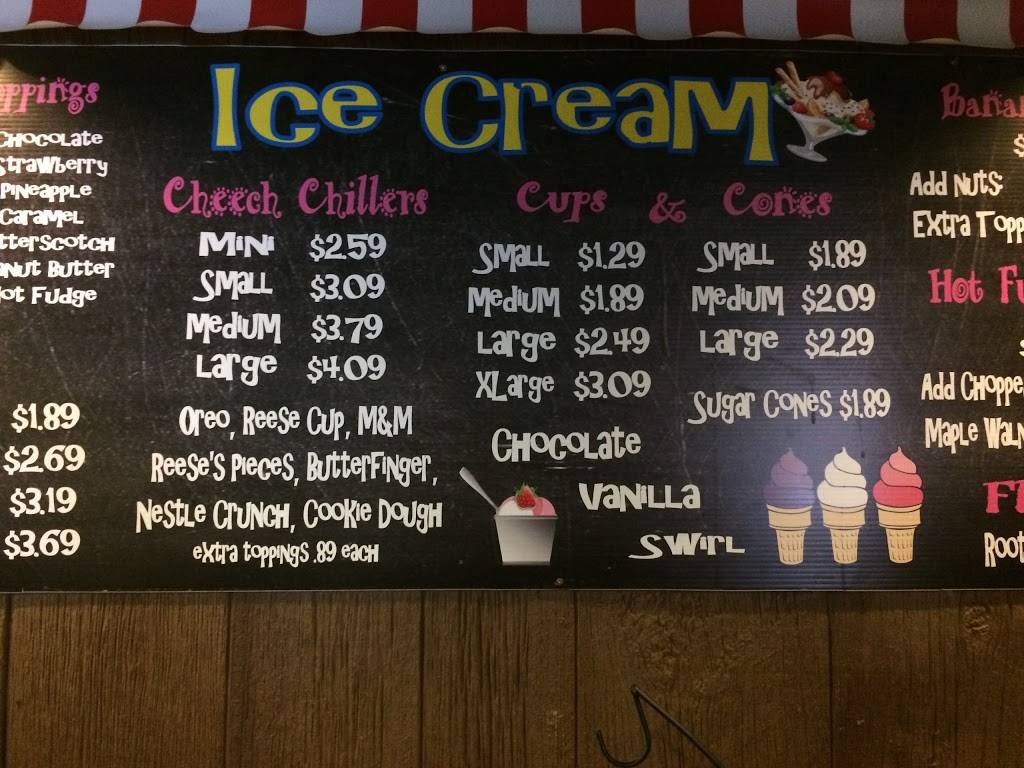 Ice Cream
oppings
Chocolate
Strawberry
Pineapple
Caramel
tterscotch
anut Butter
ot Fudge
$1.89
$2.69
$3.19
$3.69
Cheech Chillers
Mini $2.59
Small $3.09
Medium $3.79
Large $4.09
Oreo, Reese Cup, M&M
Reese's Pieces, Butterfinger,
Nestle Crunch, Cookie Dough
extra toppings .89 each
Cups & Cones
Small $1.29
Medium $1.89
Large $2.49
XLarge $3.09
Small $1.89
Medium $2.09
Large $2.29
Sugar Cones $1.89
Chocolate
Vanilla
Swirl
Bana
$
Add Nuts
Extra Topp
Hot Fu
Add Choppe
Maple Waln
Fl
Root